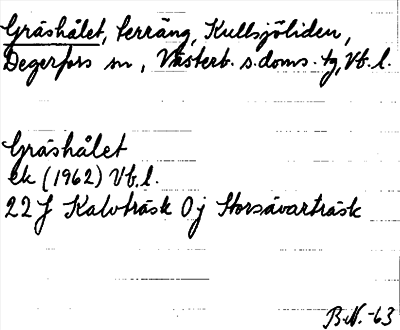 Gråshålet, terräng, Kullsjöliden,
Degerfors sn, Västerb. s. doms. tg, Vb. l.
Gråshålet
ek (1962) Vb. l.
22 J Kalvträsk 0 j Storsävarträsk
B.N. -63